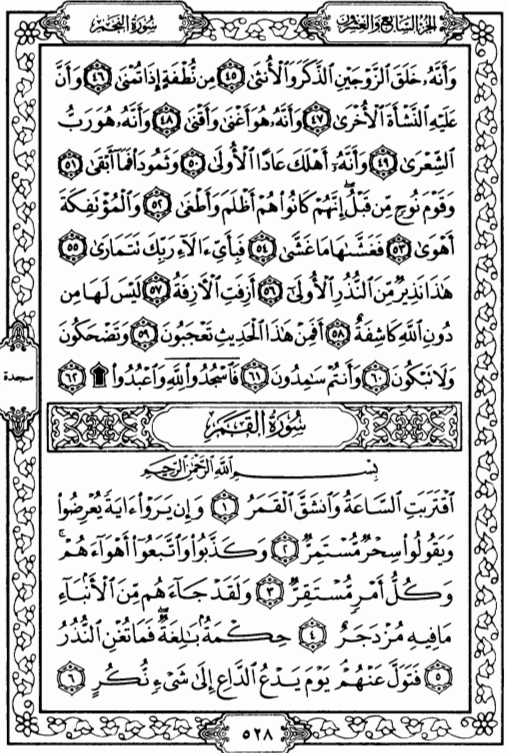 الجزء السابع والعشرون
سورة النجم
وَأَنَّهُۥ خَلَقَ ٱلزَّوْجَيْنِ ٱلذَّكَرَ وَٱلْأُنثَىٰ ٤٥ مِن نُّطْفَةٍ إِذَا تُمْنَىٰ ٤٦ وَأَنَّ
عَلَيْهِ ٱلنَّشْأَةَ ٱلْأُخْرَىٰ ٤٧ وَأَنَّهُۥ هُوَ أَغْنَىٰ وَأَقْنَىٰ ٤٨ وَأَنَّهُۥ هُوَ رَبُّ
ٱلشِّعْرَىٰ ٤٩ وَأَنَّهُۥٓ أَهْلَكَ عَادًا ٱلْأُولَىٰ ٥٠ وَثَمُودَا۟ فَمَآ أَبْقَىٰ ٥١
وَقَوْمَ نُوحٍ مِّن قَبْلُ ۖ إِنَّهُمْ كَانُوا۟ هُمْ أَظْلَمَ وَأَطْغَىٰ ٥٢ وَٱلْمُؤْتَفِكَةَ
أَهْوَىٰ ٥٣ فَغَشَّىٰهَا مَا غَشَّىٰ ٥٤ فَبِأَىِّ ءَالَآءِ رَبِّكَ تَتَمَارَىٰ ٥٥
هَٰذَا نَذِيرٌ مِّنَ ٱلنُّذُرِ ٱلْأُولَىٰٓ ٥٦ أَزِفَتِ ٱلْءَازِفَةُ ٥٧ لَيْسَ لَهَا مِن
دُونِ ٱللَّهِ كَاشِفَةٌ ٥٨ أَفَمِنْ هَٰذَا ٱلْحَدِيثِ تَعْجَبُونَ ٥٩ وَتَضْحَكُونَ
وَلَا تَبْكُونَ ٦٠ وَأَنتُمْ سَٰمِدُونَ ٦١ فَٱسْجُدُوا۟ لِلَّهِ وَٱعْبُدُوا۟ ۩ ٦٢
سجدة
سُورَةُ القَمَرِ
بِسْمِ ٱللَّهِ ٱلرَّحْمَٰنِ ٱلرَّحِيمِ
ٱقْتَرَبَتِ ٱلسَّاعَةُ وَٱنشَقَّ ٱلْقَمَرُ ١ وَإِن يَرَوْا۟ ءَايَةً يُعْرِضُوا۟
وَيَقُولُوا۟ سِحْرٌ مُّسْتَمِرٌّ ٢ وَكَذَّبُوا۟ وَٱتَّبَعُوٓا۟ أَهْوَآءَهُمْ ۚ
وَكُلُّ أَمْرٍ مُّسْتَقِرٌّ ٣ وَلَقَدْ جَآءَهُم مِّنَ ٱلْأَنۢبَآءِ
مَا فِيهِ مُزْدَجَرٌ ٤ حِكْمَةٌۢ بَٰلِغَةٌ ۖ فَمَا تُغْنِ ٱلنُّذُرُ
٥ فَتَوَلَّ عَنْهُمْ ۘ يَوْمَ يَدْعُ ٱلدَّاعِ إِلَىٰ شَىْءٍ نُّكُرٍ ٦
٥٢٨